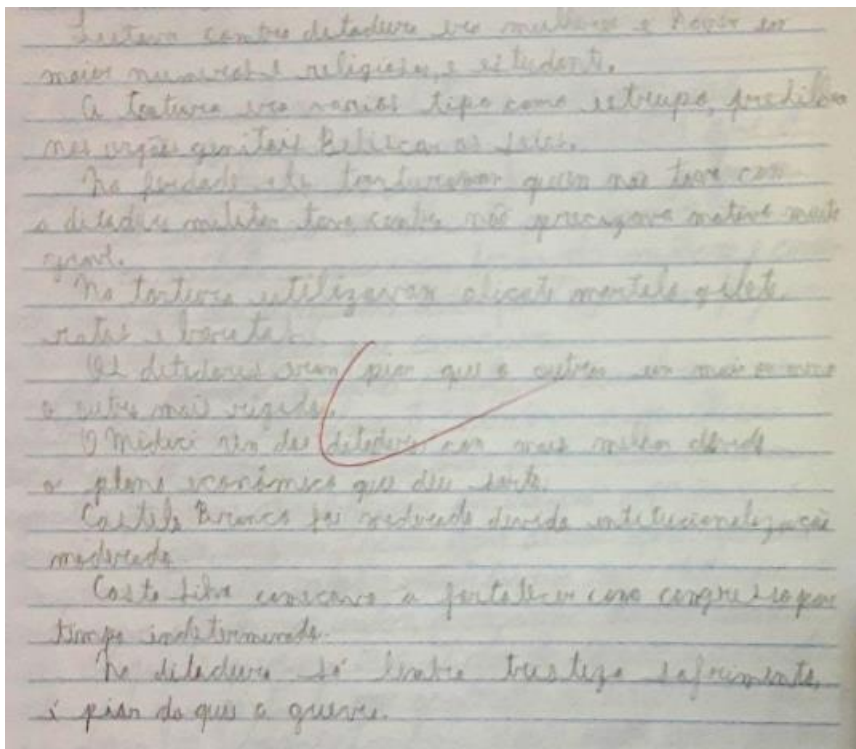 contra ditadura era mulheres e
maior numeros e religiosos, e estudante.
A tortura era varios tipo como estrupo,
nos orgãos genitais Beliscar os
Na ele torturavam quem não tava com
a ditadura militar tava contra não motivo muito
grave.
Na tortura utilizavam alicate martelo gilete
ratos e baratas.
Os ditadores eram pior que o outros um mais ou meno
o outro mais rigido.
O Médici um dos ditadores com mais melhor devido
o plano econômico que deu serto.
Castelo Branco foi moderado devido
moderada
Costa Silva começava a fortalecer como congresso por
tempo indeterminado.
Na ditadura só lembra tristeza sofrimento,
é pior do que a guerra.